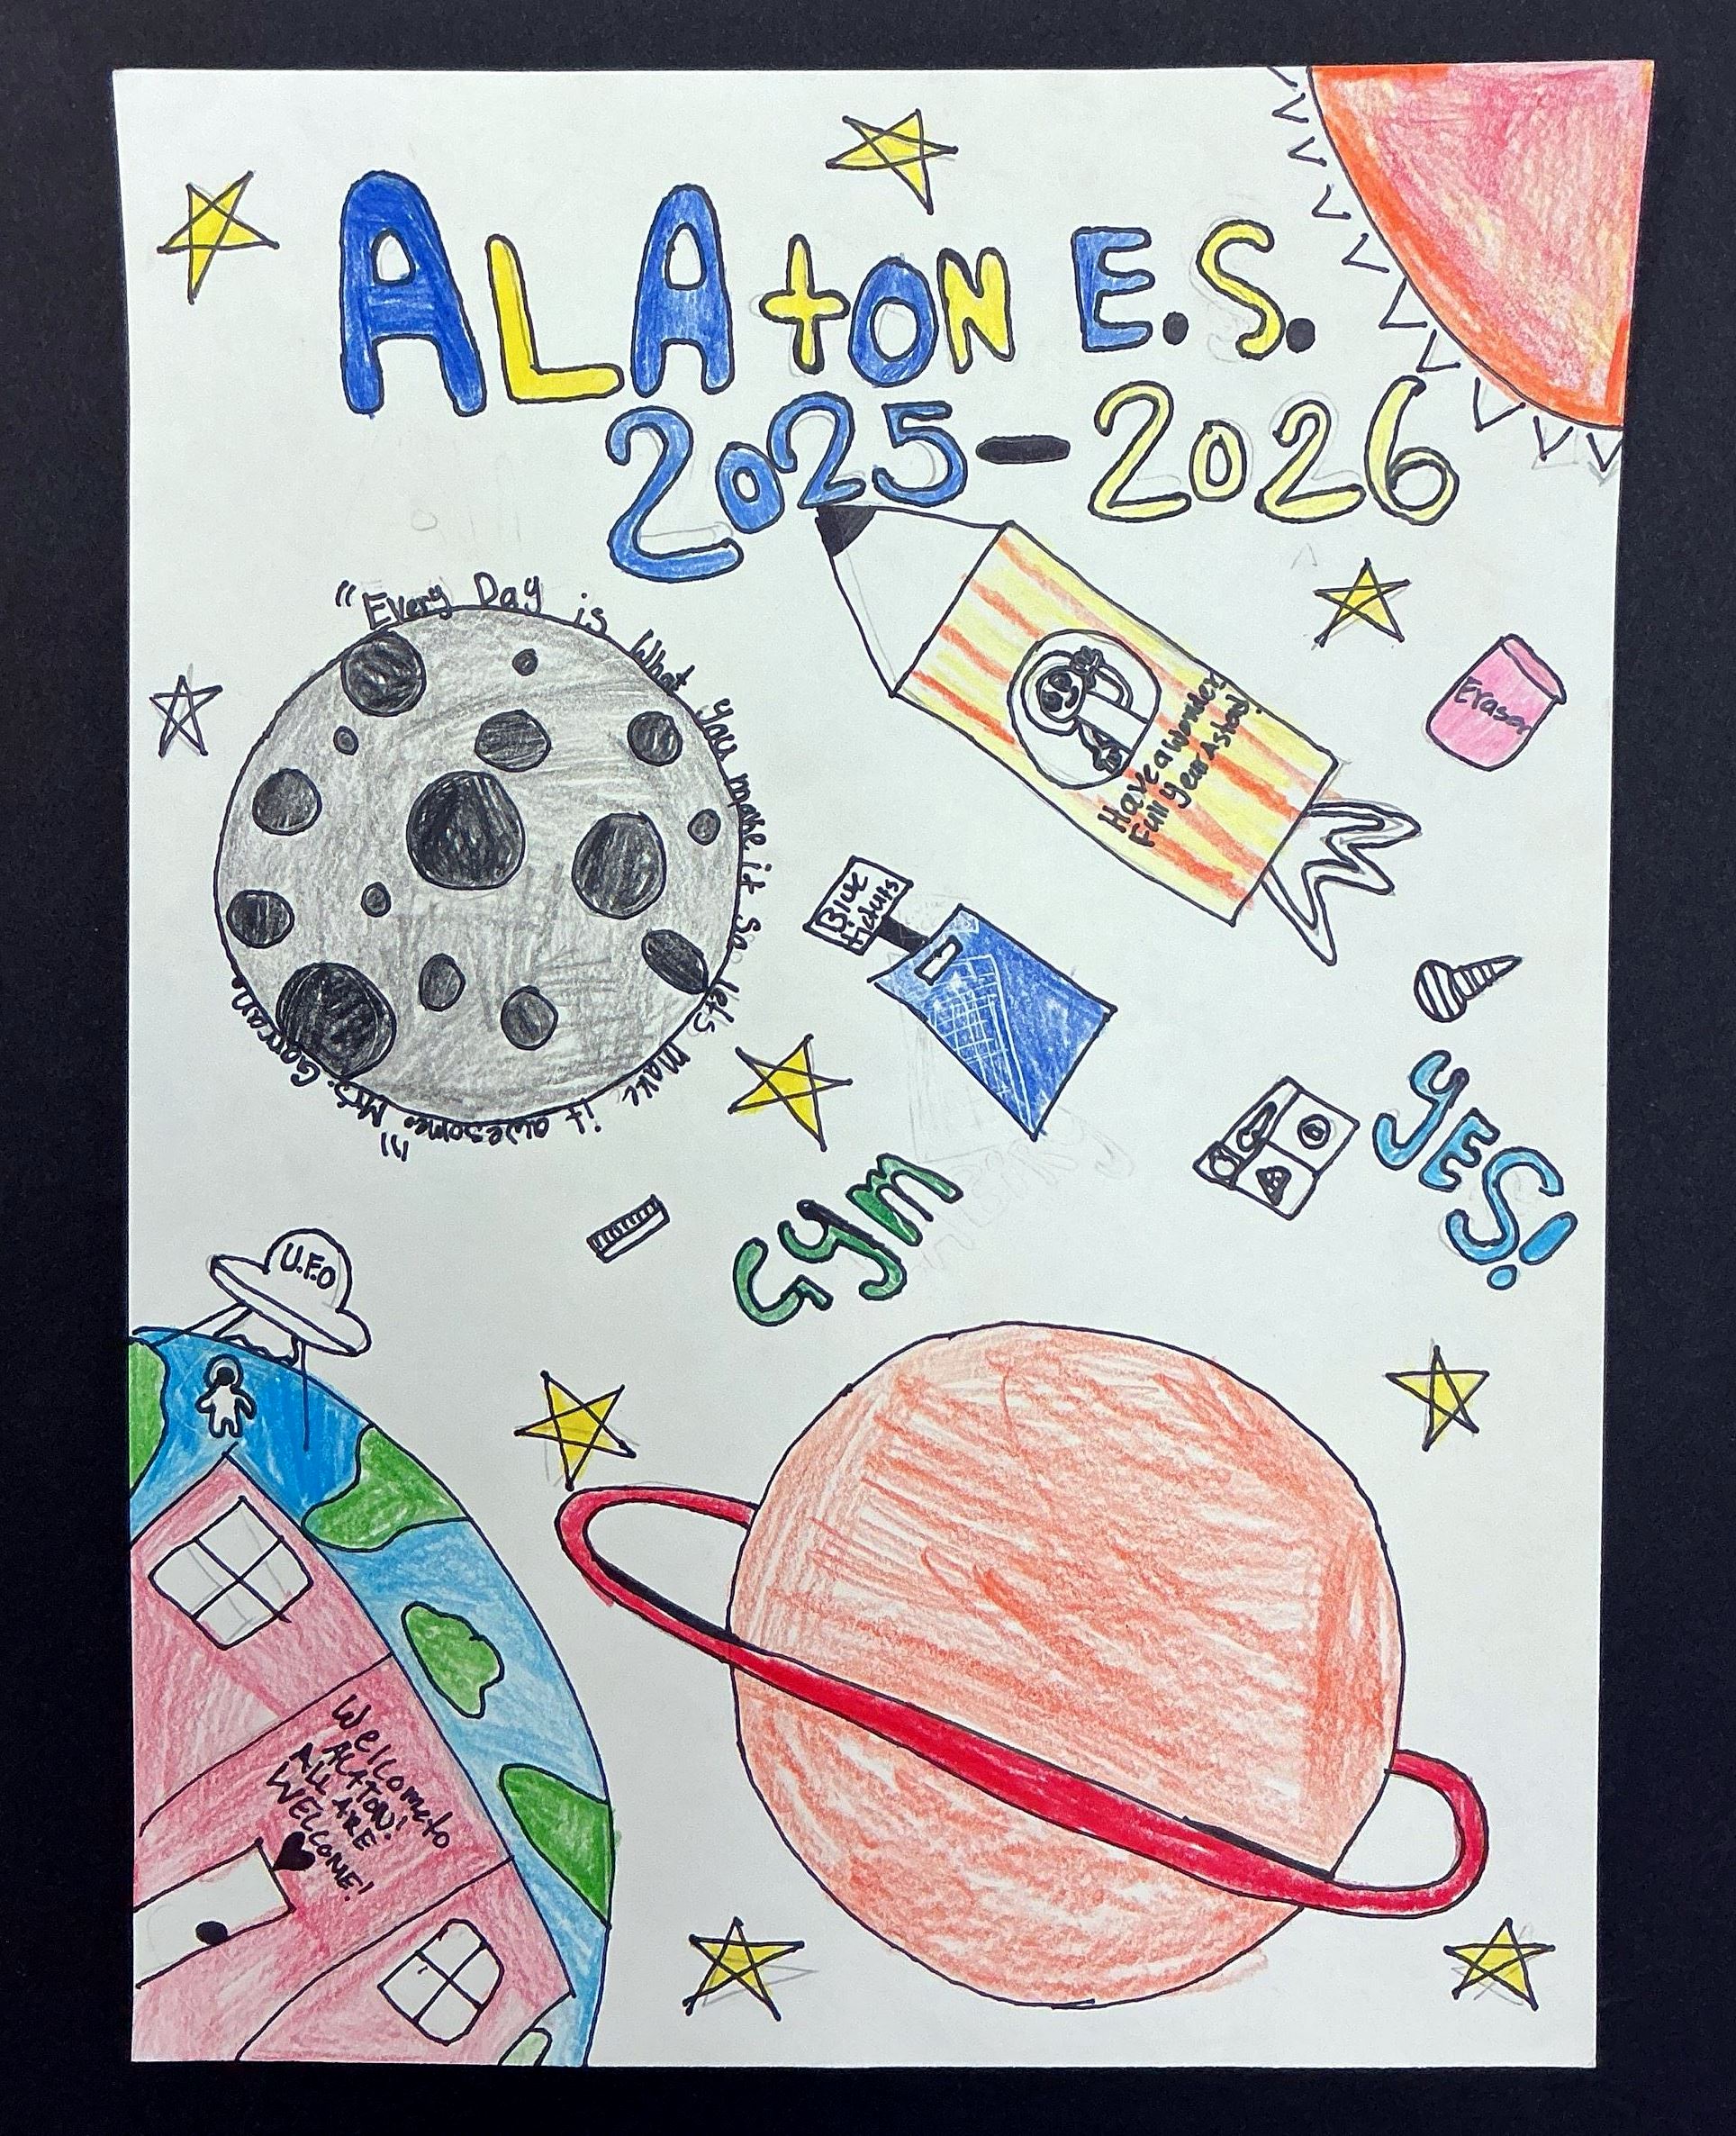 ALAtON E.S.
2025-2026
"Every Day is What you make it so let's Make it awesome." Mrs. Garran
Have a wonder
Full year Aston!
Eraser
Blue
tickuts
YES!
GYM
U.F.O
Welcome to
ALATON!
ALL ARE
WELCOME!